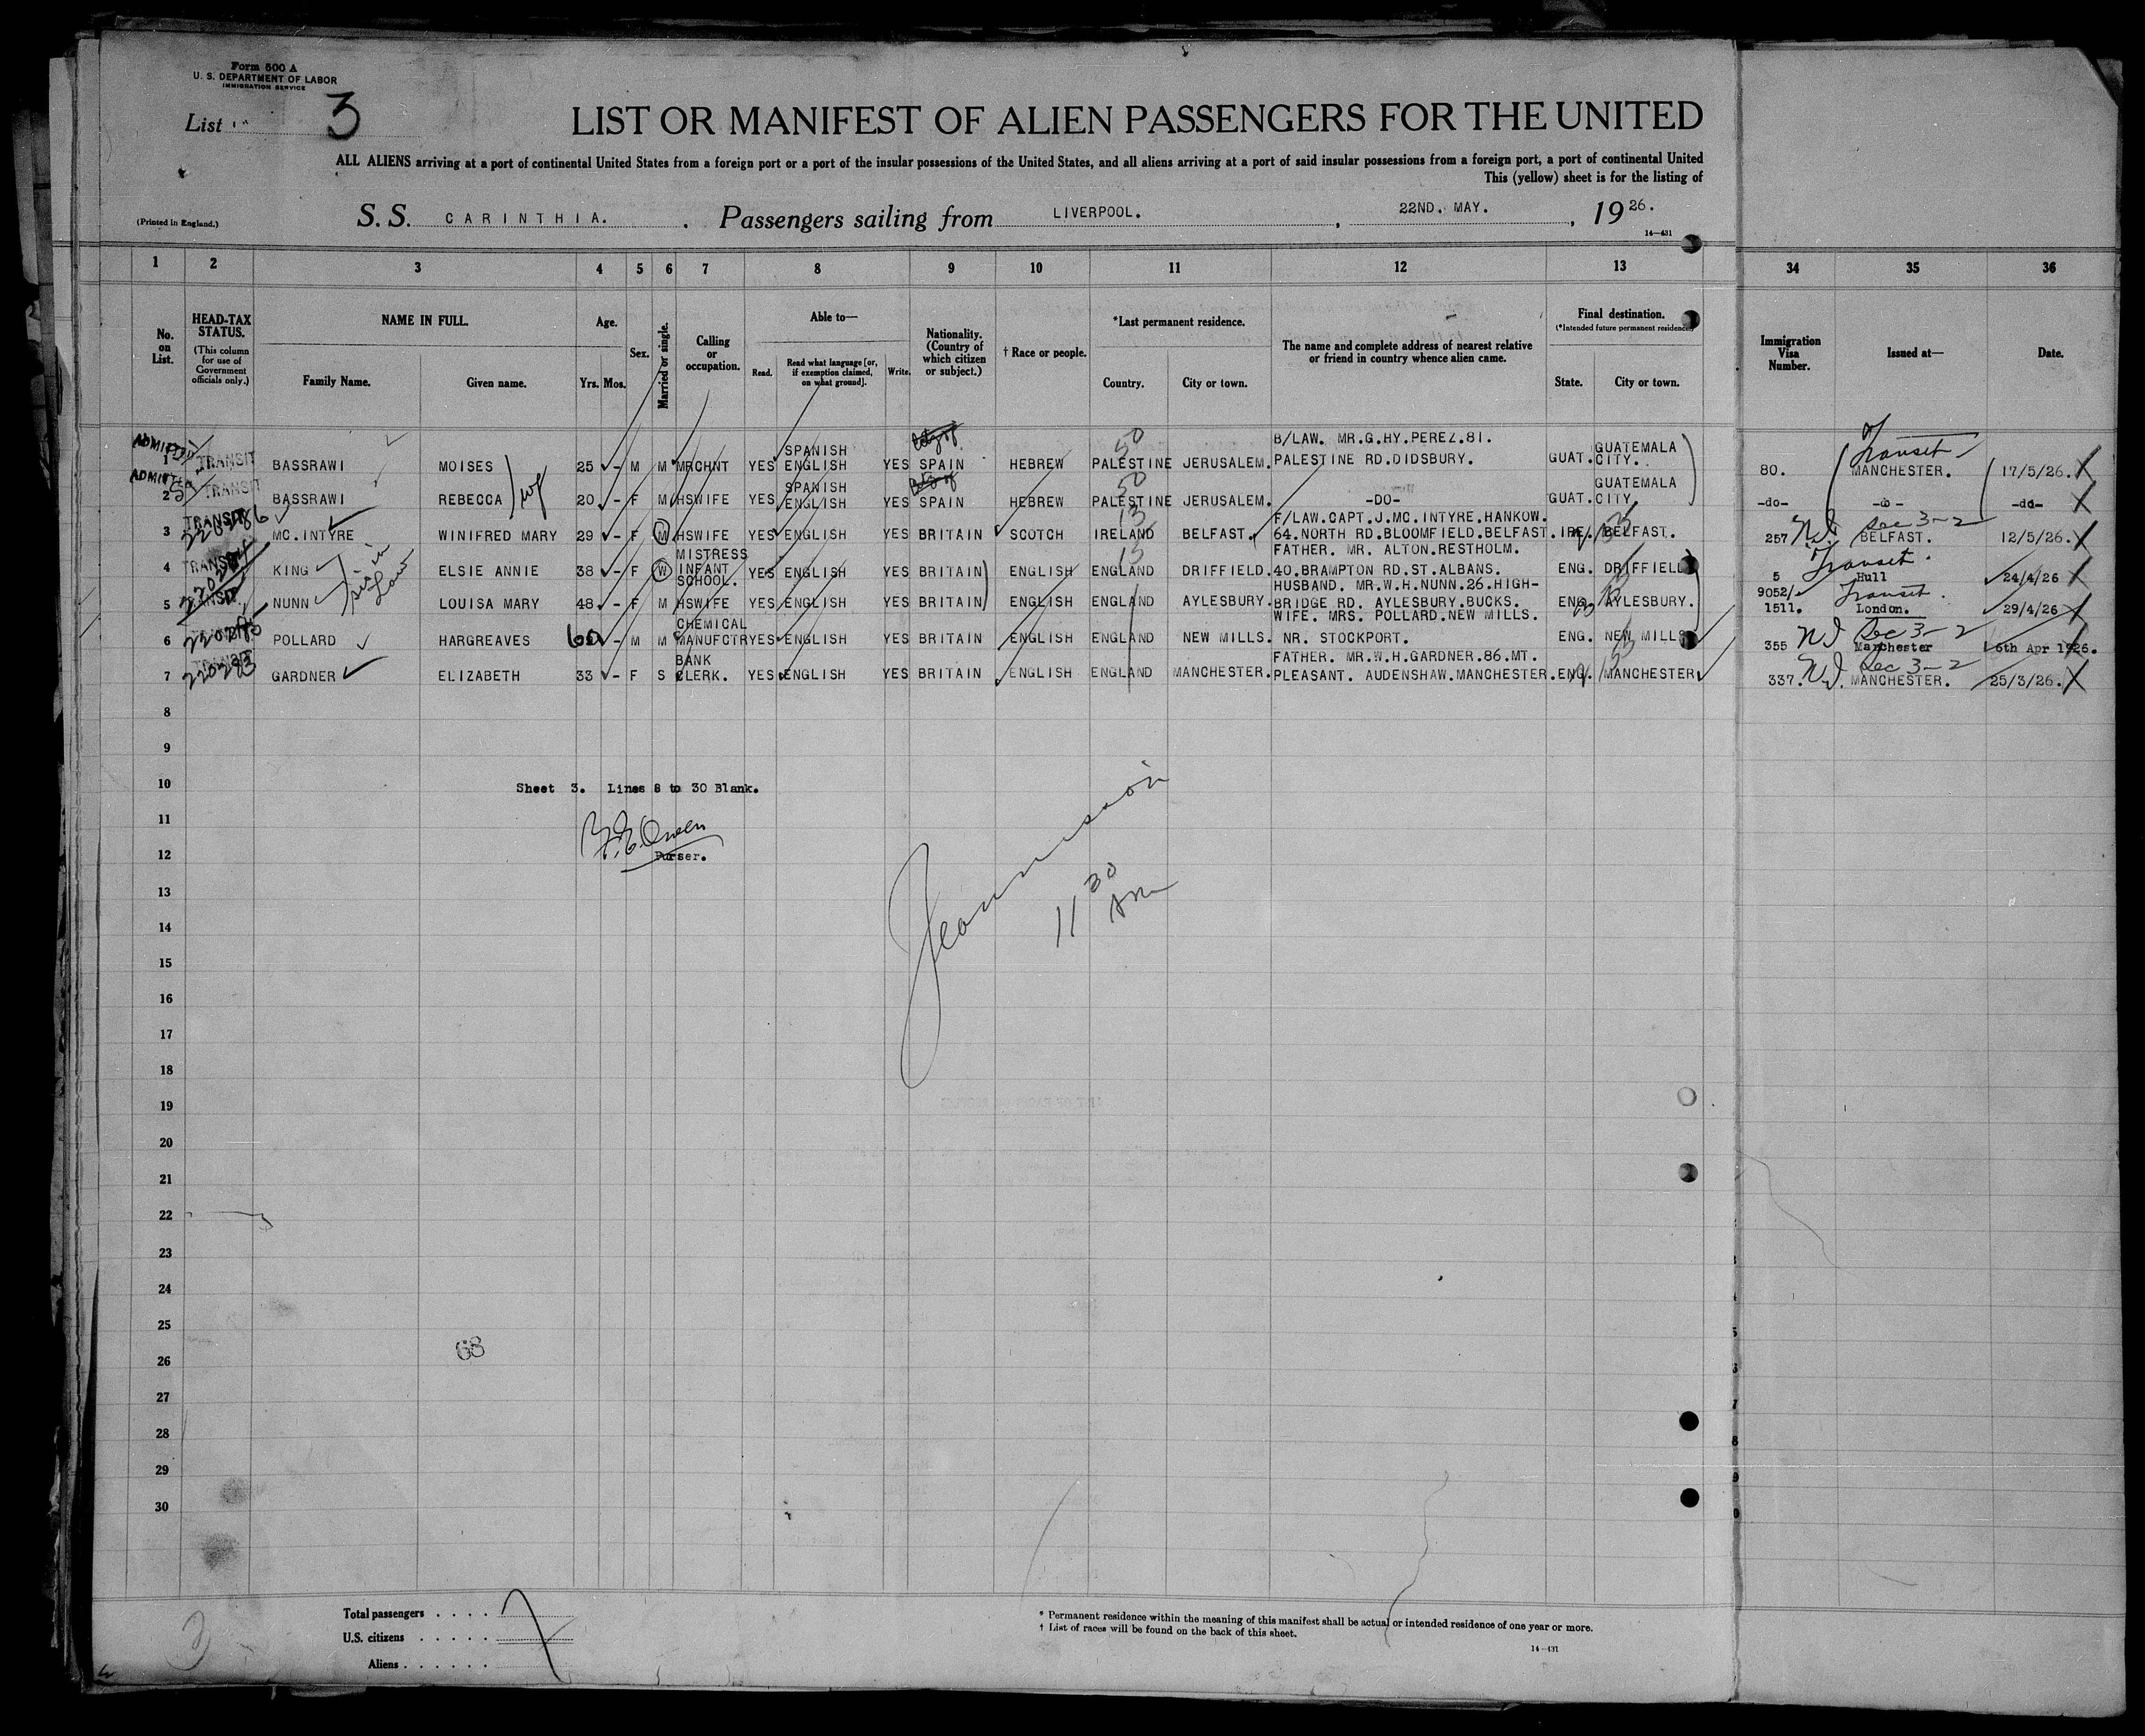 Form 500 A
U. S. DEPARTMENT OF LABOR
IMMIGRATION SERVICE
List 3
LIST OR MANIFEST OF ALIEN PASSENGERS FOR THE UNITED
ALL ALIENS arriving at a port of continental United States from a foreign port or a port of the insular possessions of the United States, and all aliens arriving at a port of said insular possessions from a foreign port, a port of continental United
This (yellow) sheet is for the listing of
(Printed in England.)
S. S. CARINTHIA. Passengers sailing from LIVERPOOL. , 22ND. MAY. , 1926.
14—431
1 2 3 4 5 6 7 8 9 10 11 12 13 34 35 36
No. on List.
HEAD-TAX STATUS. (This column for use of Government officials only.)
NAME IN FULL.
Family Name. Given name.
Age. Yrs. Mos.
Sex.
Married or single.
Calling or occupation.
Able to—
Read. Read what language [or, if exemption claimed, on what ground]. Write.
Nationality. (Country of which citizen or subject.)
† Race or people.
*Last permanent residence.
Country. City or town.
The name and complete address of nearest relative or friend in country whence alien came.
Final destination.
(*Intended future permanent residence.)
State. City or town.
Immigration Visa Number.
Issued at—
Date.
ADMITTED 1 TRANSIT BASSRAWI MOISES 25 - M M MRCHNT YES SPANISH ENGLISH YES SPAIN HEBREW 50 PALESTINE JERUSALEM. B/LAW. MR.G.HY.PEREZ.81. PALESTINE RD.DIDSBURY. GUAT. GUATEMALA CITY. 80. Transit MANCHESTER. 17/5/26.
ADMITTED 2 TRANSIT BASSRAWI REBECCA wf 20 - F M HSWIFE YES SPANISH ENGLISH YES SPAIN HEBREW 50 PALESTINE JERUSALEM. -DO- GUAT. GUATEMALA CITY. -do- -do- -do-
3 TRANSIT MC.INTYRE WINIFRED MARY 29 - F M HSWIFE YES ENGLISH YES BRITAIN SCOTCH 13 IRELAND BELFAST. F/LAW.CAPT.J.MC.INTYRE.HANKOW. 64.NORTH RD.BLOOMFIELD.BELFAST. IRE. BELFAST. 257 Sec 3-2 BELFAST. 12/5/26.
4 TRANSIT KING ELSIE ANNIE 38 - F W MISTRESS INFANT SCHOOL. YES ENGLISH YES BRITAIN ENGLISH 13 ENGLAND DRIFFIELD. FATHER. MR. ALTON.RESTHOLM. 40.BRAMPTON RD.ST.ALBANS. ENG. DRIFFIELD 5 Transit Hull 24/4/26
sis in Law
5 TRANSIT NUNN LOUISA MARY 48 - F M HSWIFE YES ENGLISH YES BRITAIN ENGLISH ENGLAND AYLESBURY. HUSBAND. MR.W.H.NUNN.26.HIGH-BRIDGE RD. AYLESBURY.BUCKS. ENG. AYLESBURY. 9052/1511. Transit. London. 29/4/26
6 POLLARD HARGREAVES 60 - M M CHEMICAL MANUFCTR YES ENGLISH YES BRITAIN ENGLISH ENGLAND NEW MILLS. WIFE. MRS. POLLARD.NEW MILLS. NR. STOCKPORT. ENG. NEW MILLS 355 Sec 3-2 Manchester 6th Apr 1926.
7 TRANSIT GARDNER ELIZABETH 33 - F S BANK CLERK. YES ENGLISH YES BRITAIN ENGLISH ENGLAND MANCHESTER. FATHER. MR.W.H.GARDNER.86.MT. PLEASANT. AUDENSHAW.MANCHESTER. ENG. MANCHESTER 337. Sec 3-2 MANCHESTER. 25/3/26.
8
9
10
Sheet 3. Lines 8 to 30 Blank.
11
12
Purser.
13
11 30 AM
14
15
16
17
18
19
20
21
22
23
24
25
26
68
27
28
29
30
Total passengers . . . . 7
U.S. citizens . . . . .
Aliens . . . . . .
3
* Permanent residence within the meaning of this manifest shall be actual or intended residence of one year or more.
† List of races will be found on the back of this sheet.
14—431